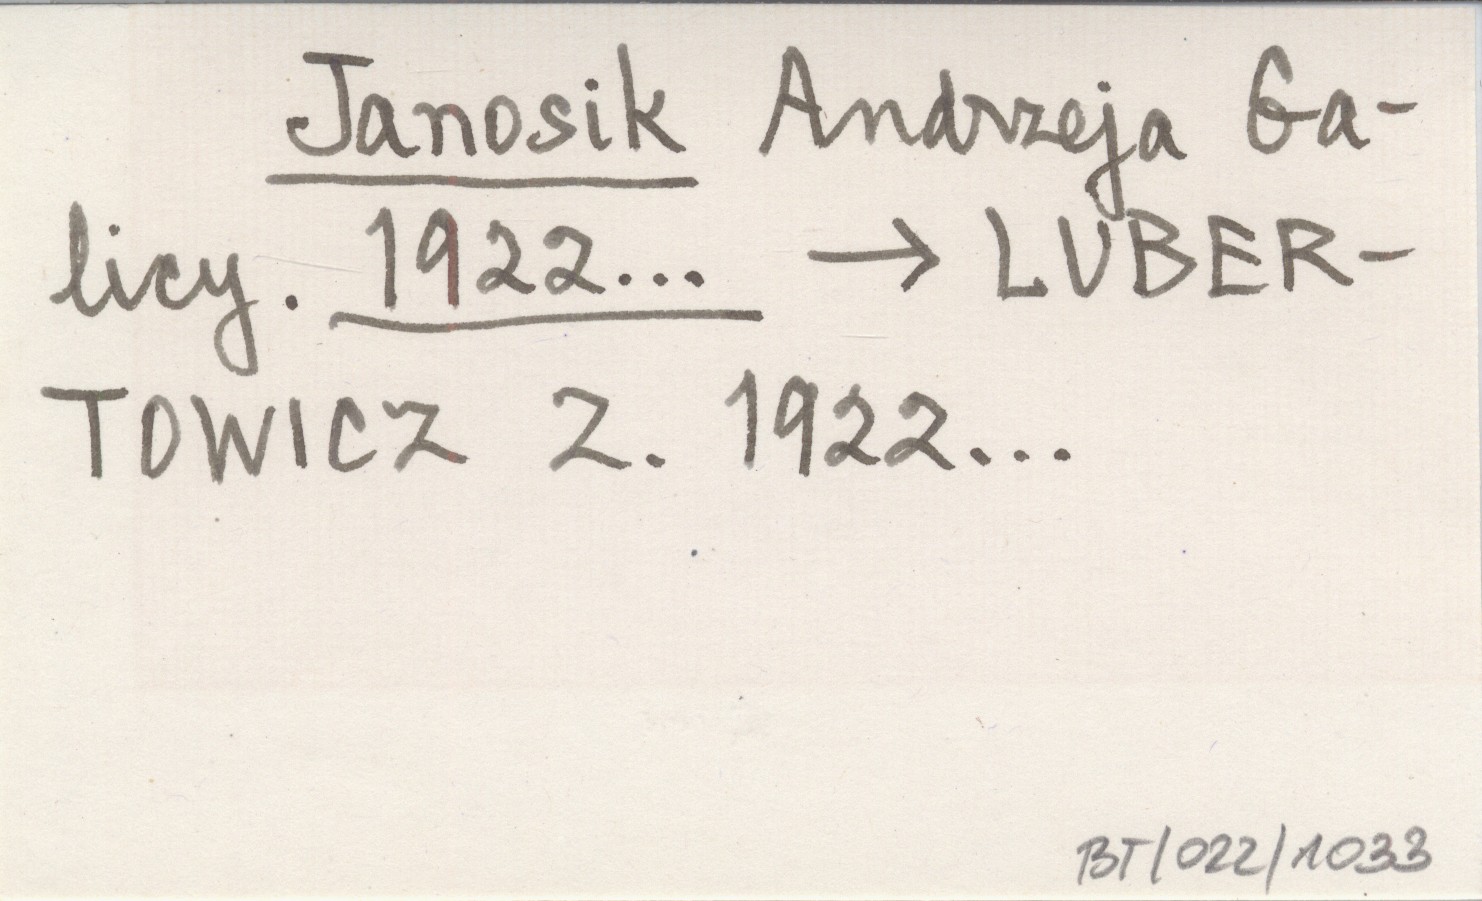 Janosik Andrzeja Ga-
licy. 1922... → LUBER-
TOWICZ Z. 1922...
BT/022/1033